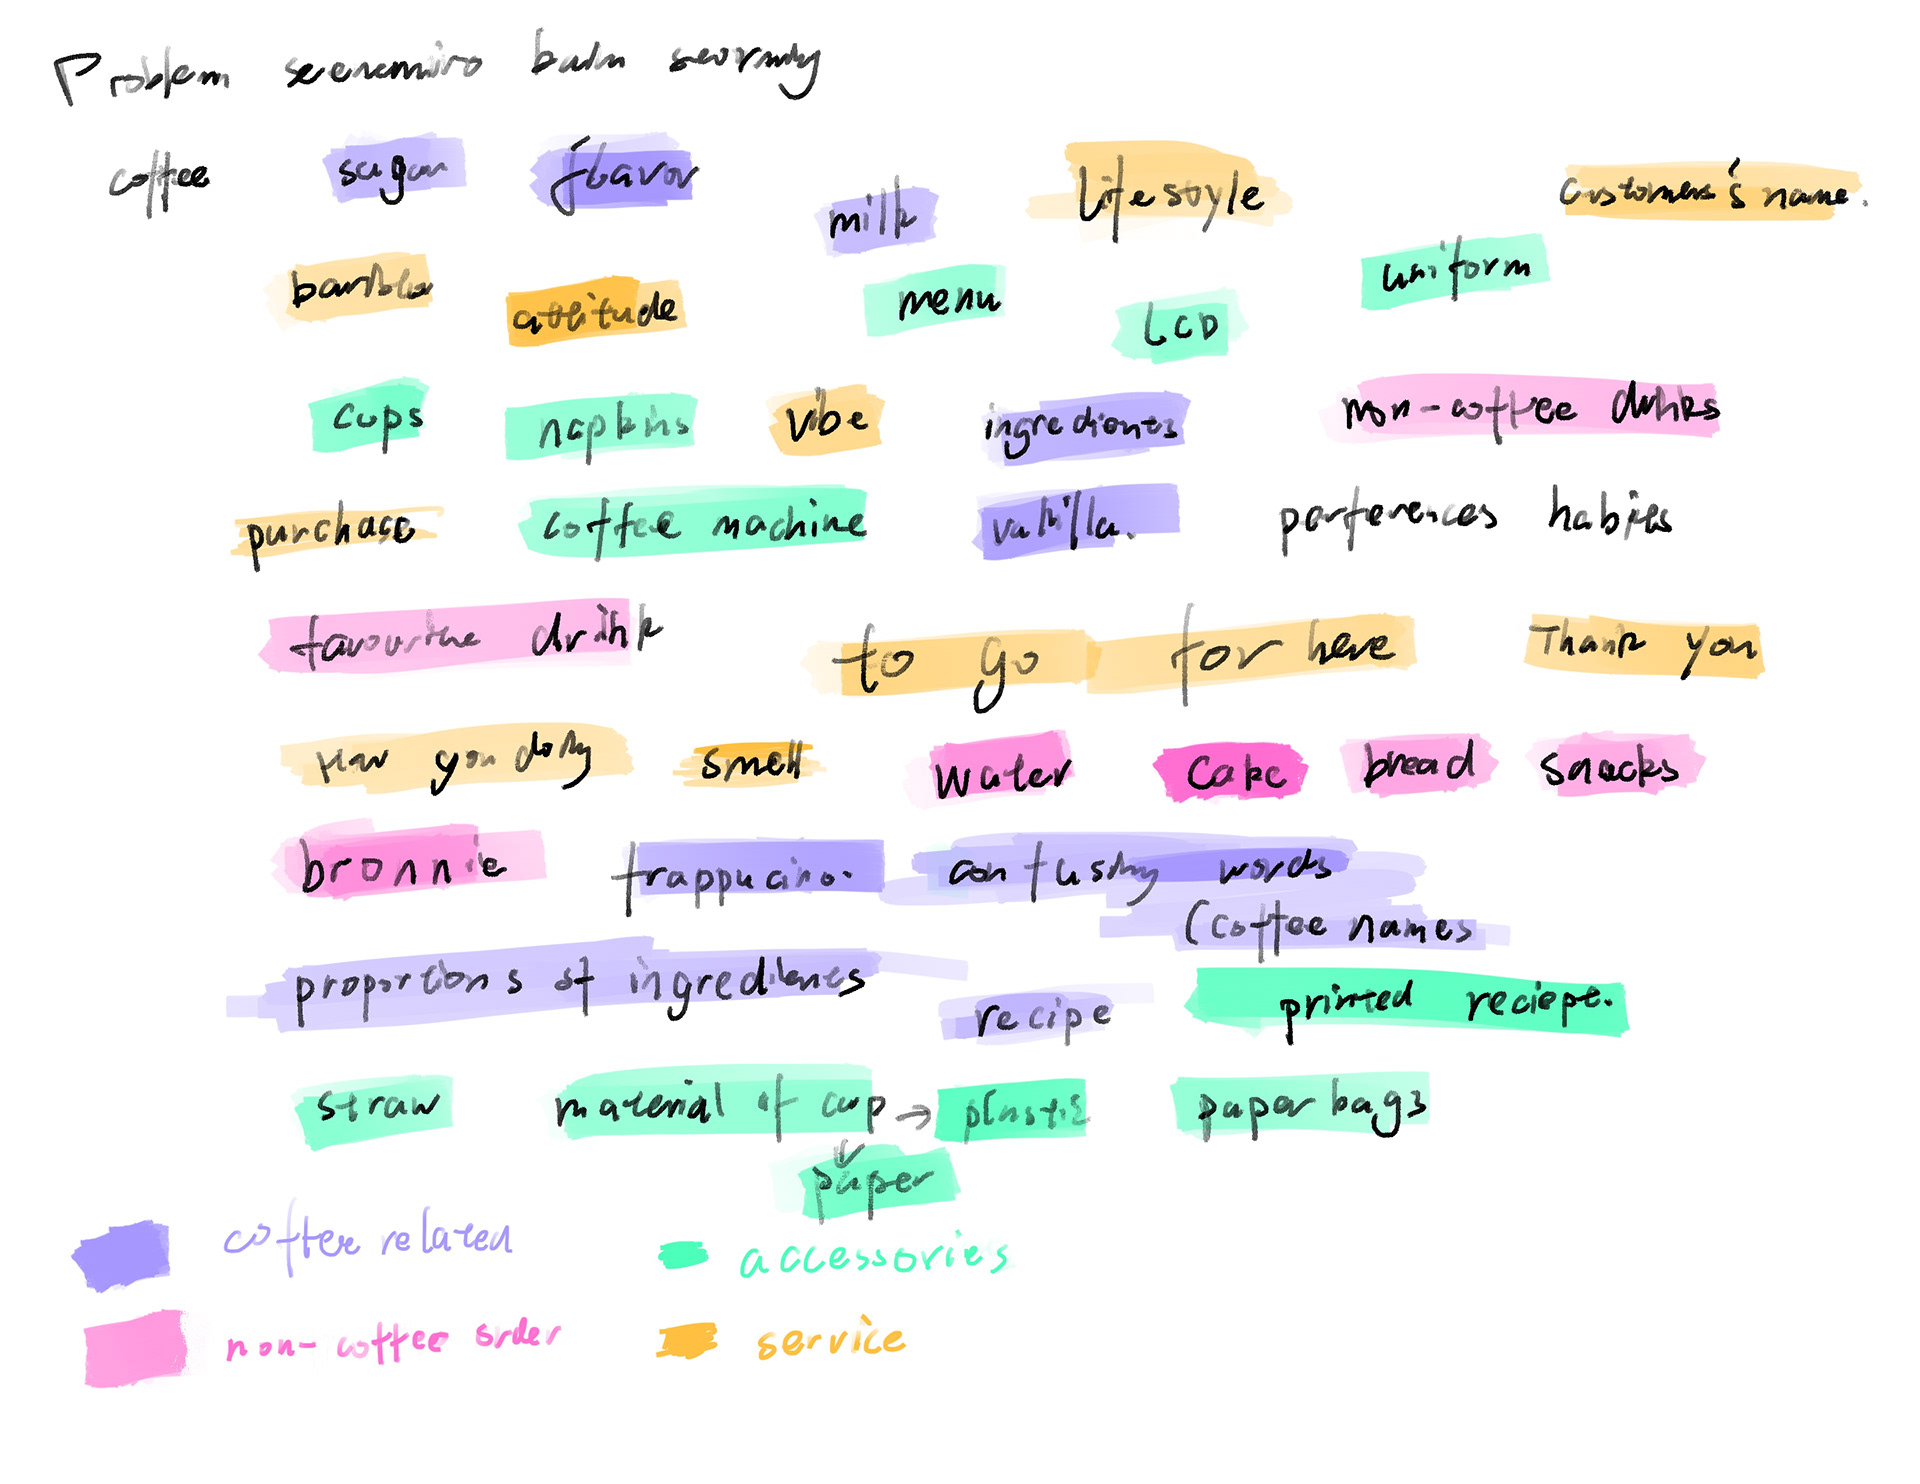 Problem
coffee sugar flavor
milk lifestyle customers's name.
attitude menu LCD uniform
cups napkins vibe ingredients non-coffee drinks
purchase coffee machine vanilla. perferences habits
favourite drink to go for here Thank you
smell water cake bread snacks
bronnie frappucino. confusing words
(coffee names
proportions of ingredients recipe printed reciept.
straw material of cup → plastic paper bags
paper
coffee related accessories
non-coffee order service